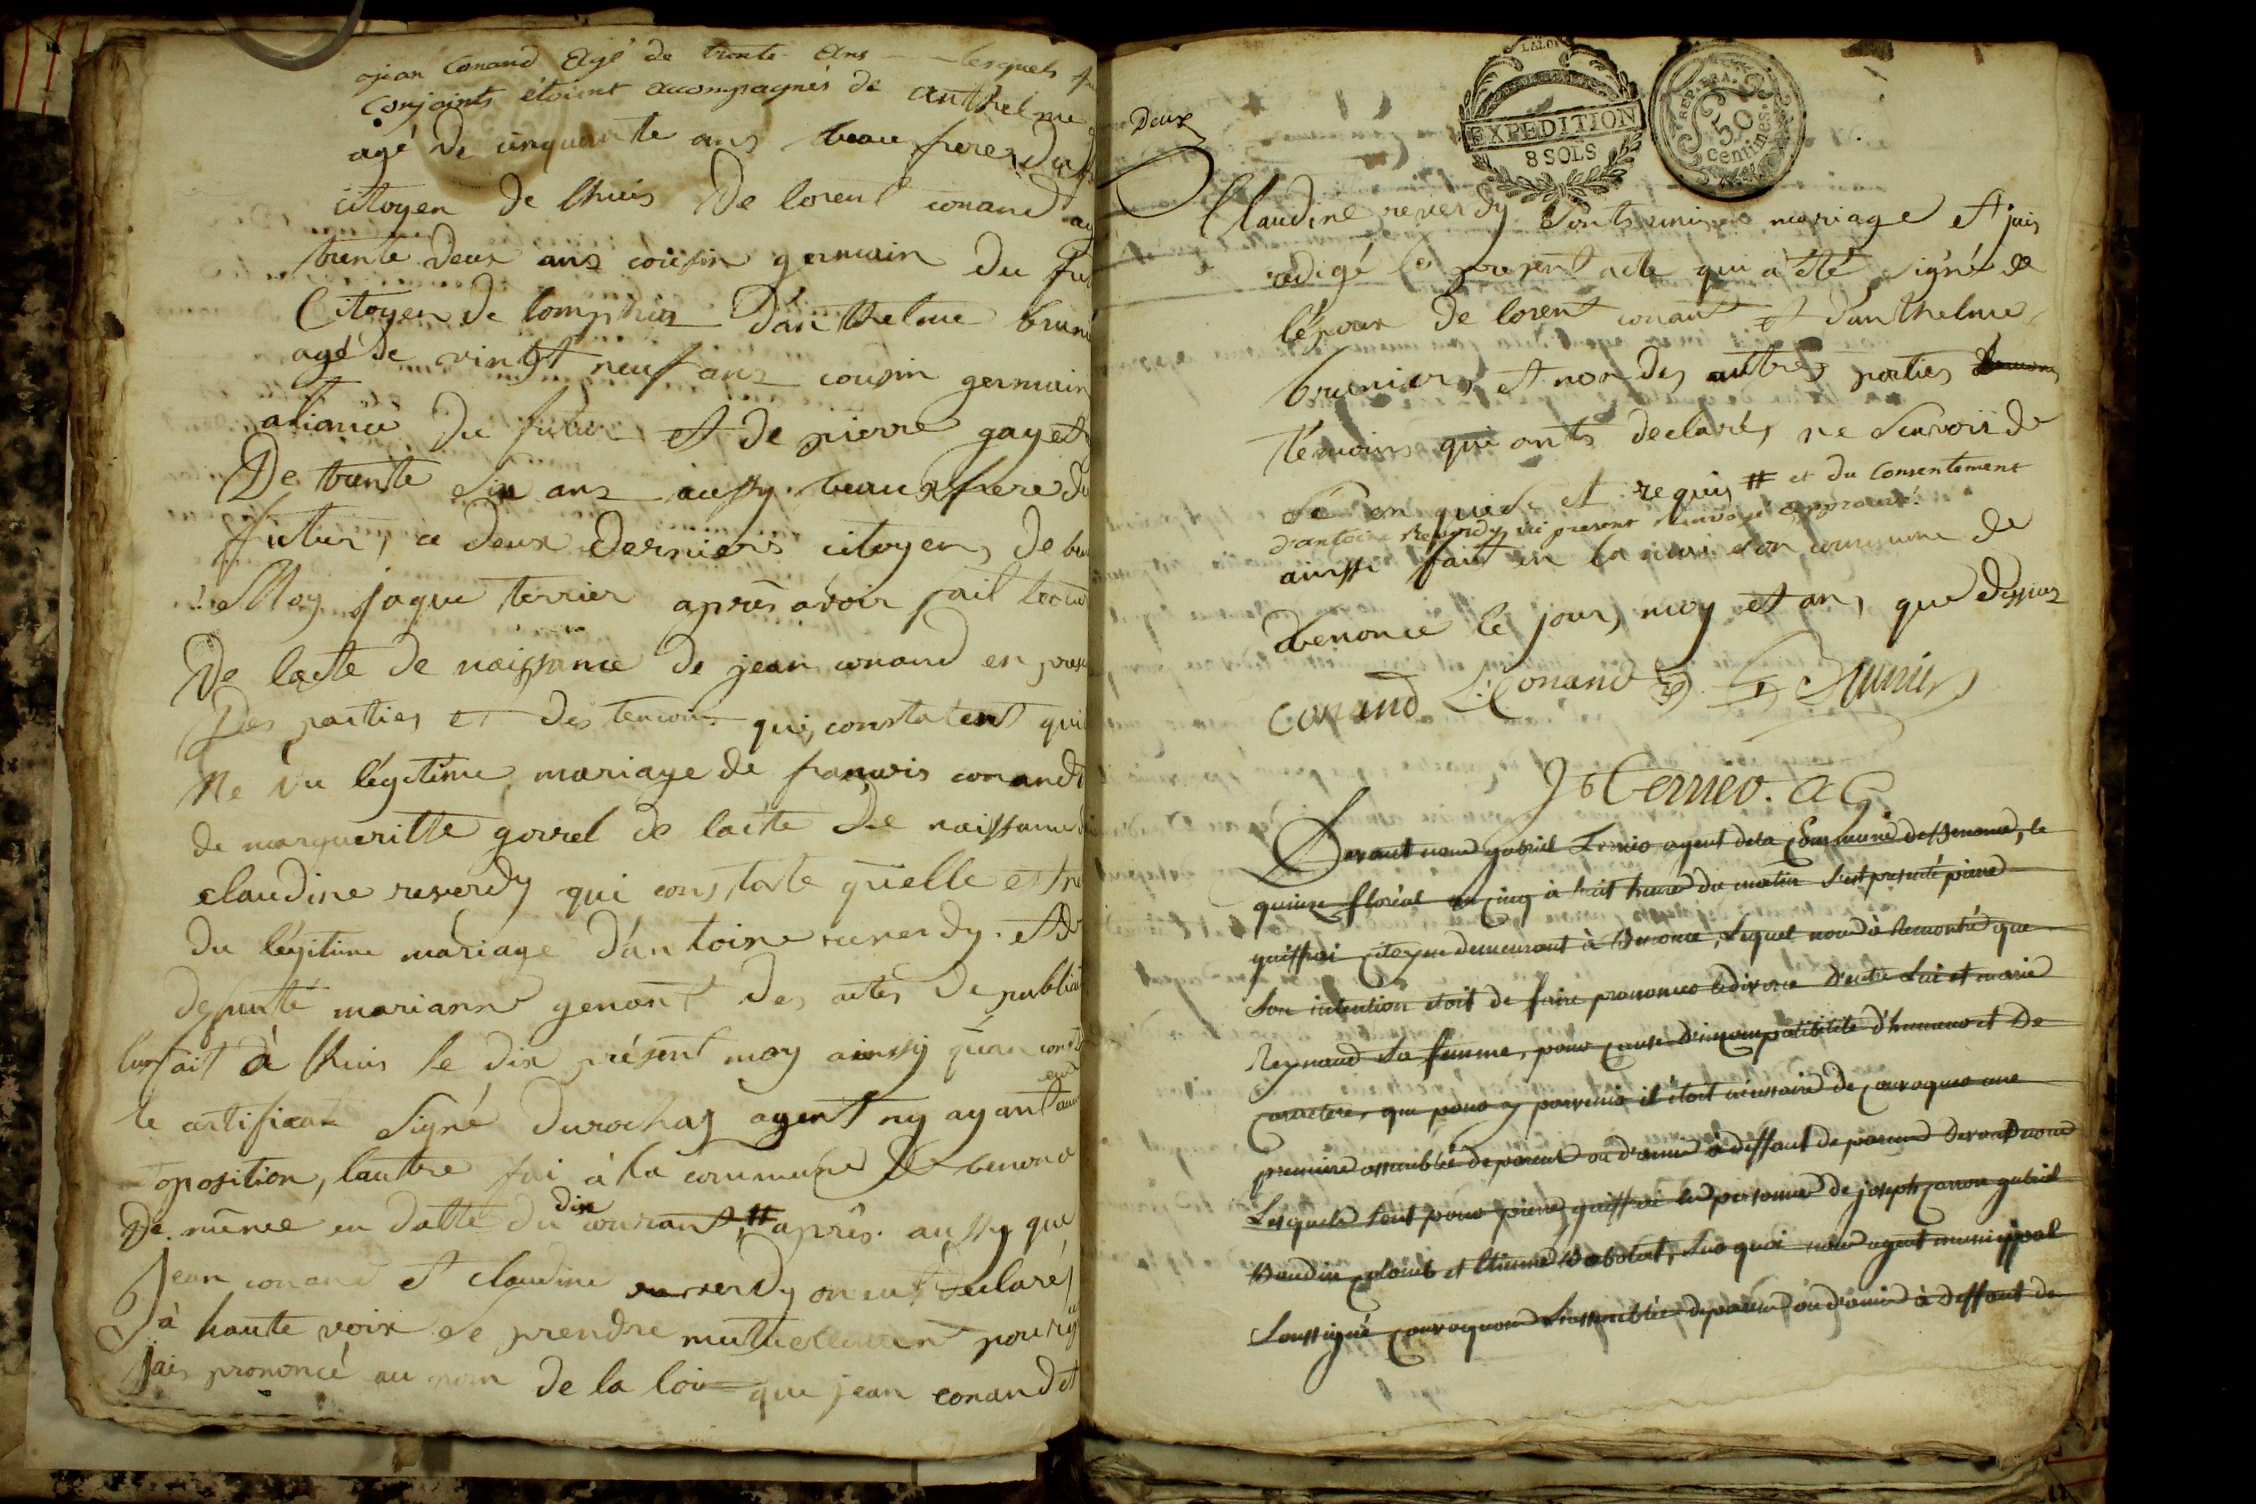 jean Conand Agé de trente Ans lesquels
Conjoints étoient accompagnés de anthelme
agé de cinquante ans beau frere du
citoyen de lhuis De lorent conand
trente deux ans cousin germain du
Citoyen de lomphnas D'anthelme
agé de vintgt neuf ans cousin germain
aliance du futur et de pierre gayet
De trente six ans aussy beau frere du
futur, ce deux derniers citoyens de
Moy jaque terrier après avoir fait
De lacte de naissance de jean conand en
Des parties et des temoins qui constatent
Né du légitime mariage de francois conand
de margueritte goirel de lacte De naissance
claudine reverdy qui constate quelle est
Du légitime mariage d'antoine reverdy et de
defunte marianne genant des actes de
fait à lhuis le dix présent moy ainssy quan
le certificat signé Durochas agent ny ayant
oposition, lautre fai à la commune de benonce
De même en datte du dix courant # après aussy que
Jean conand et claudine reverdy on eut declarés
à haute voix se prendre mutuellement
jais prononcé au nom de la loi que jean conand et
Deux
LALOI
EXPEDITION
8 SOLS
REP. FRA.
50
centimes.
Claudine reverdy sonts unis mariage et jais
redigé le present acte qui a été signé de
lépoux de lorent conant et d'anthelme
brunier, et non des autres parties
témoins qui onts declarés ne scavoir de
ce en quis et requis # et du Consentement
d'antoine Reverdy ici present renvoi approuvé.
ainssi fait en la maison commune de
benonce le jour, moy et an, que dessus
Conand L. Conand Brunier
Jb Terrier. a G
Devant nous gabriel agent de la Commune de Benonce, le
quinze floréal an cinq à huit heures du matin s'est presenté pierre
citoyen demeurant à Benonce, lequel nous à remontré que
son intention etoit de faire prononcer le divorce d'entre lui et marie
Reynaud sa femme, pour cause d'incompatibilité d'humeur et De
caractere, que pour y parvenir il étoit nécessaire de convoquer une
premiere assemblée de parens ou d'amis à deffaut de parens devant nous
Lesquels sont pour pierre les personnes de joseph gabriel
et Etienne sur quoi nous agent municipal
soussigné convoquons l'assemblée de parens ou d'amis à deffaut de